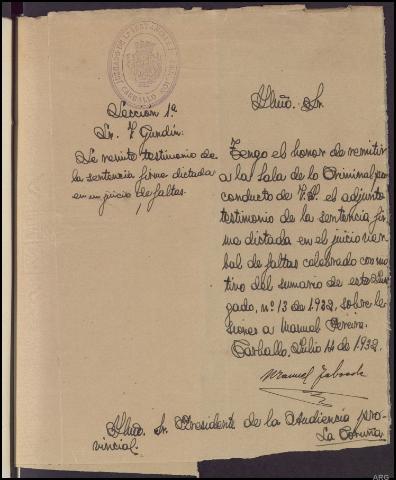 JUZGADO DE
CARBALLO
Sección 1ª
Sr. Gundín:
Se remite testimonio de
la sentencia firme dictada
en un juicio de faltas.
Iltmo. Sr.
Tengo el honor de remitir
a la Sala de lo Criminal por
conducto de V.I. el adjunto
testimonio de la sentencia fir
me dictada en el juicio ver
bal de faltas celebrado con mo
tivo del sumario de este Juz
gado, nº 13 de 1932, sobre le
siones a Manuel Pereira.
Carballo, Julio 14 de 1932.
Manuel Taboada
Iltmo. Sr. Presidente de la Audiencia pro-
vincial.
La Coruña
ARG